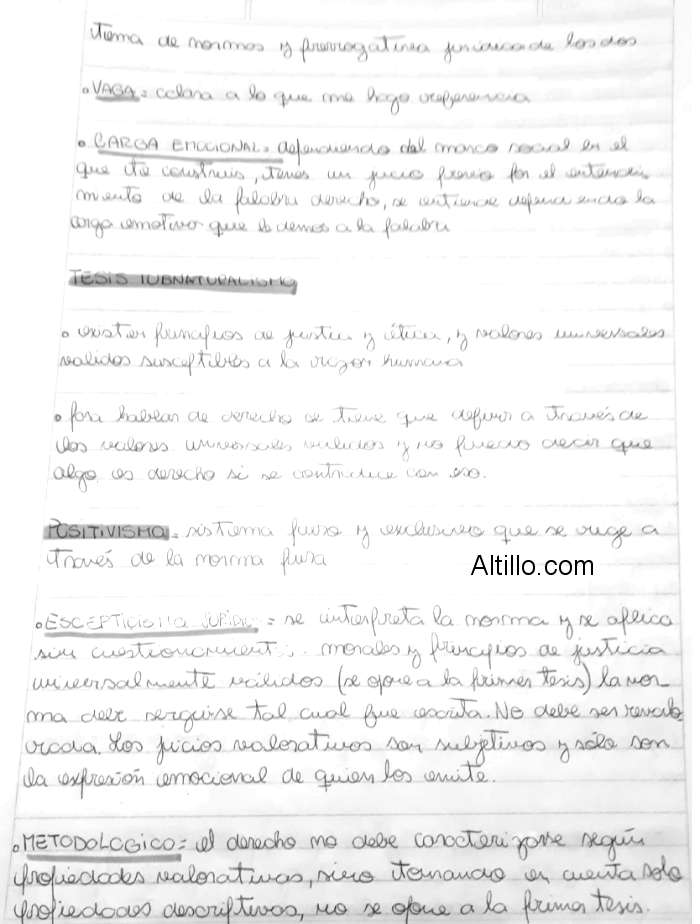 tema de normas y prerrogativa juridica de los dos
• VAGA = celara a lo que me hago referencia
• CARGA EMOCIONAL = dependiendo del marco social en el
que te construis, tenes un juicio previo por el entendi
miento de la palabra derecho, se entiende dependiendo la
carga emotiva que le demos a la palabra
TESIS IUSNATURALISMO
• existen principios de justicia y ética, y valores universales
validos susceptibles a la razon humana
• para hablar de derecho se tiene que definir a través de
los valores universales validos y no puedo decir que
algo es derecho si se contradice con eso.
POSITIVISMO = sistema puro y exclusivo que se rige a
través de la norma pura
Altillo.com
• ESCEPTICISMO = se interpreta la norma y se aplica
sin morales y principios de justicia
universalmente válidos (se opone a la primer tesis) la nor-
ma debe seguirse tal cual fue escrita. No debe ser
Los juicios valorativos son subjetivos y sólo son
la expresión emocional de quien los emite.
• METODOLOGICO = el derecho no debe caracterizarse según
propiedades valorativas, sino tomando en cuenta solo
propiedades descriptivas, no se opone a la primer tesis.